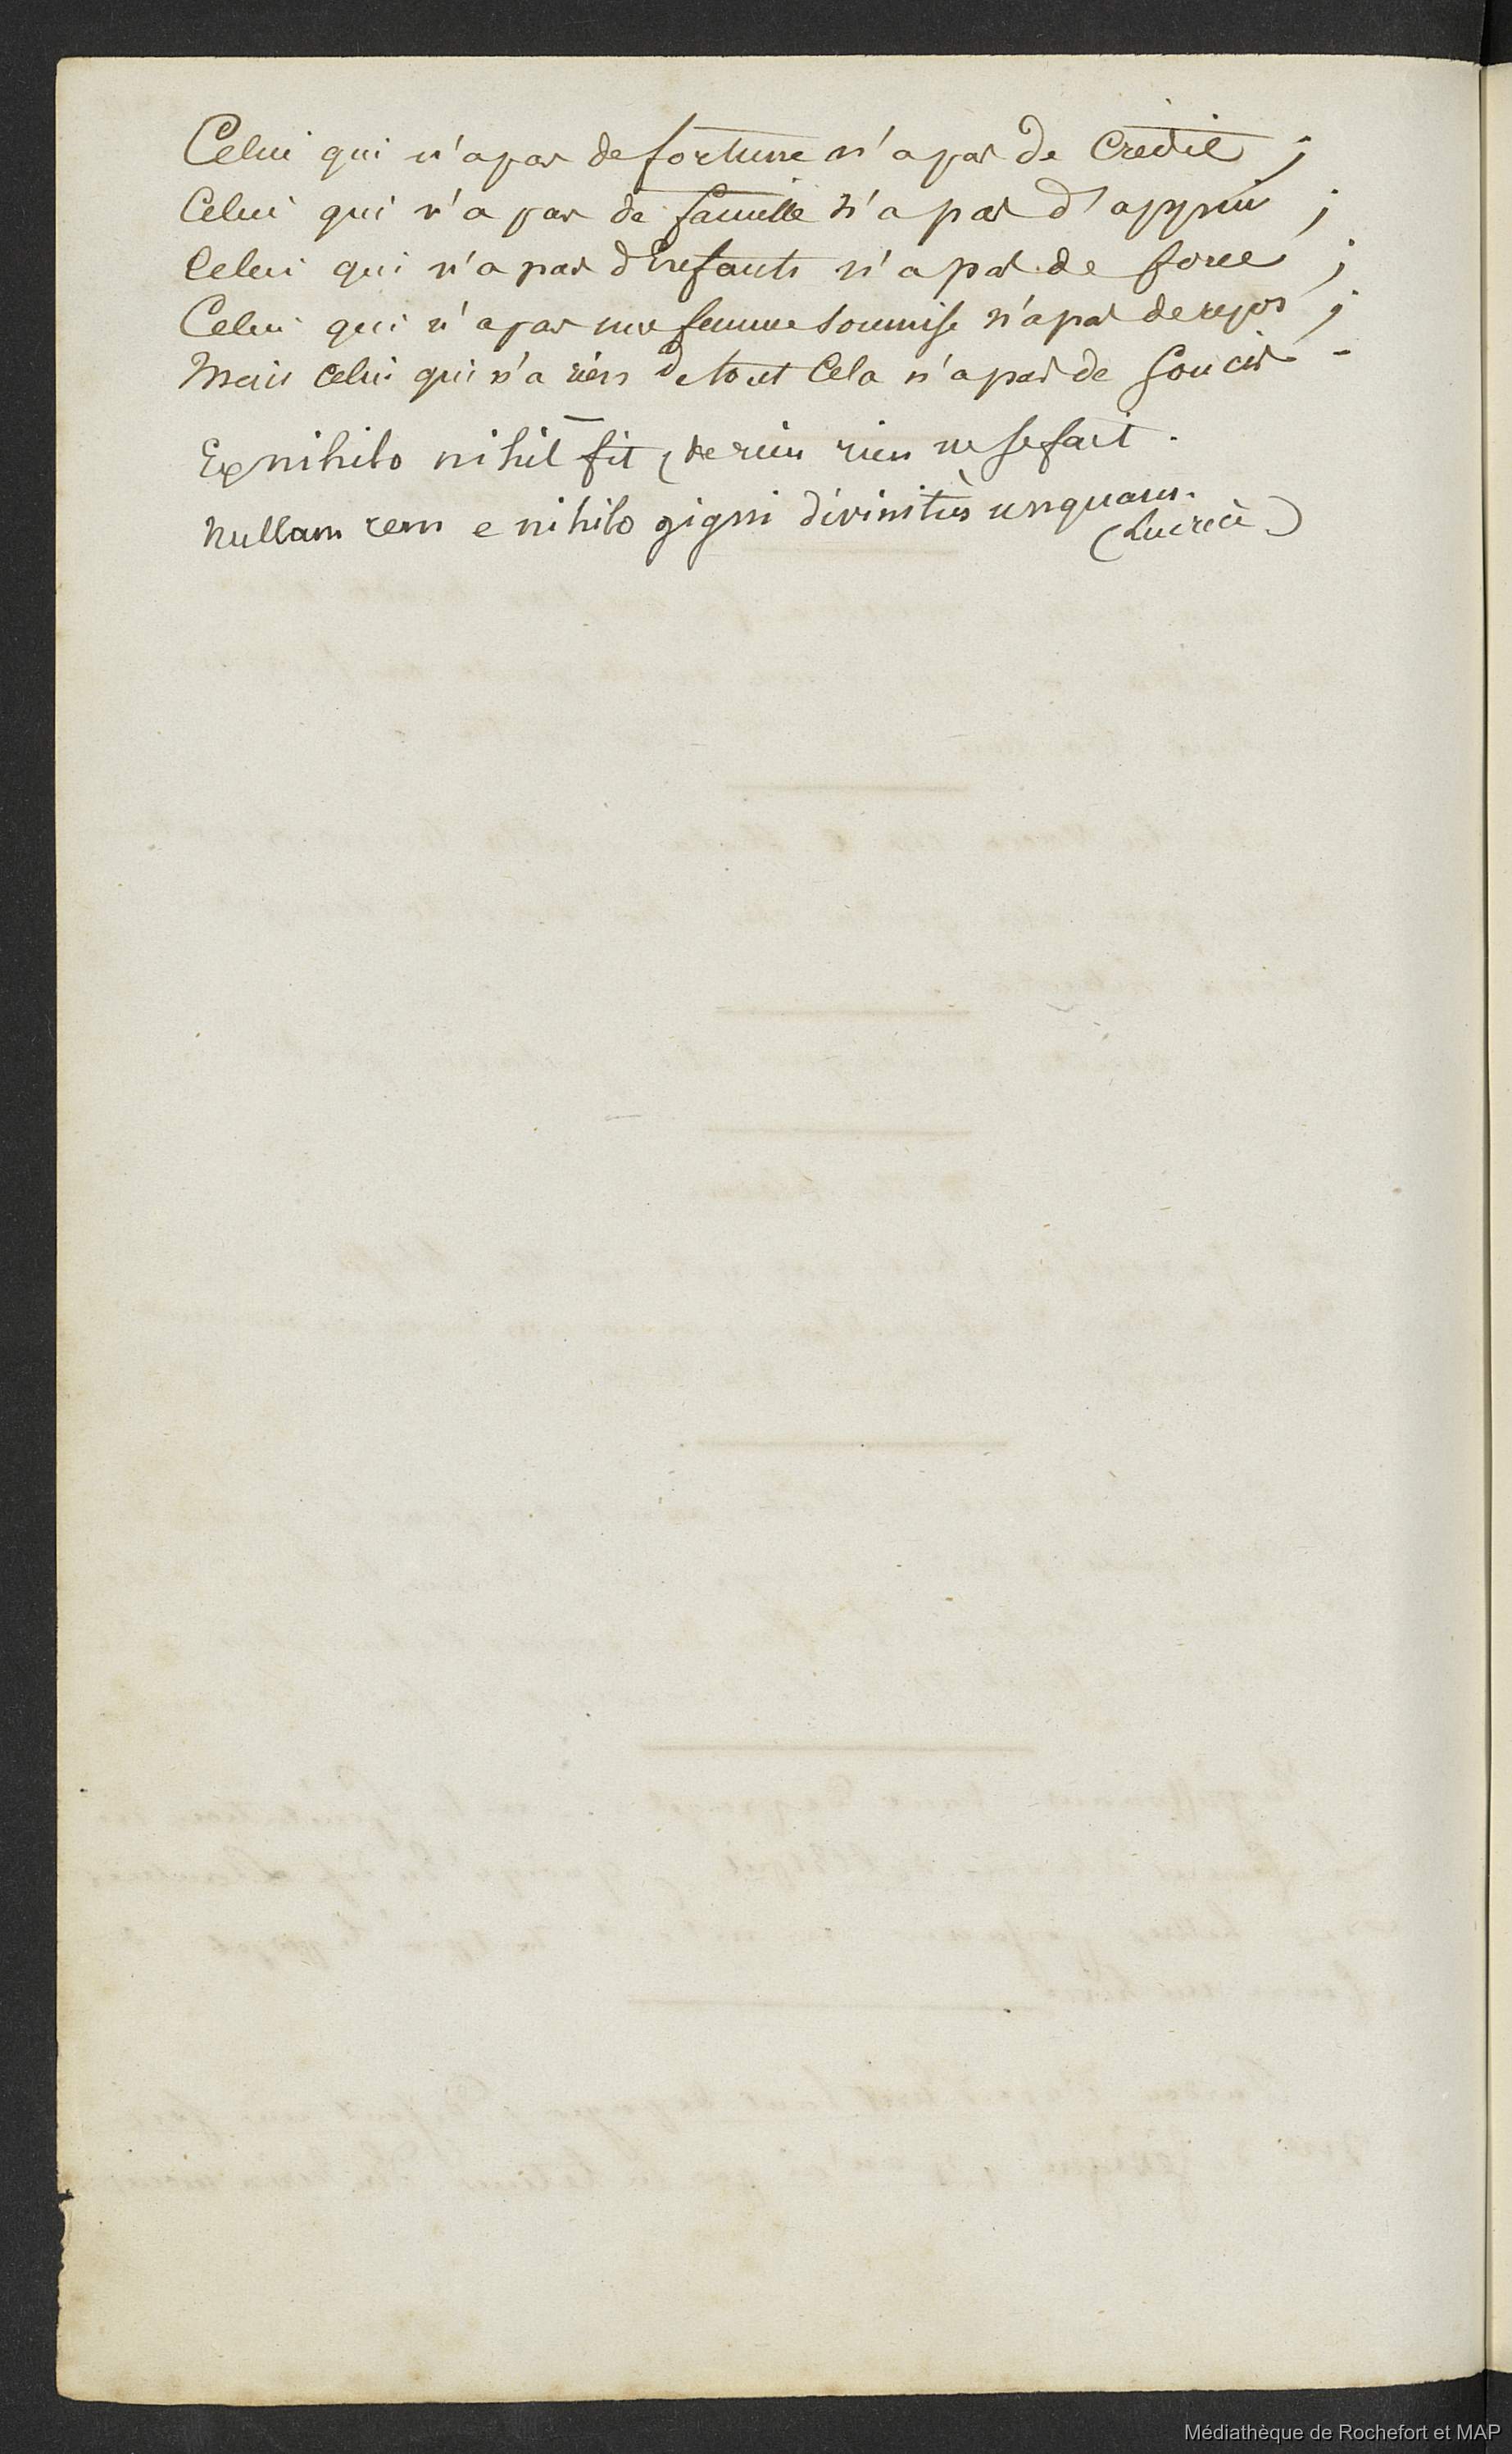 Celui qui n'a pas de fortune n'a pas de Crédit ;
Celui qui n'a pas de famille n'a pas d'appui ;
Celui qui n'a pas d'Enfants n'a pas de force ;
Celui qui n'a pas une femme soumise n'a pas de repos ;
Mais celui qui n'a rien de tout Cela n'a pas de Soucis -
Ex nihilo nihil fit, de rien rien ne se fait.
Nullam rem e nihilo gigni divinitùs unquam.
(Lucrèce)
Médiathèque de Rochefort et MAP